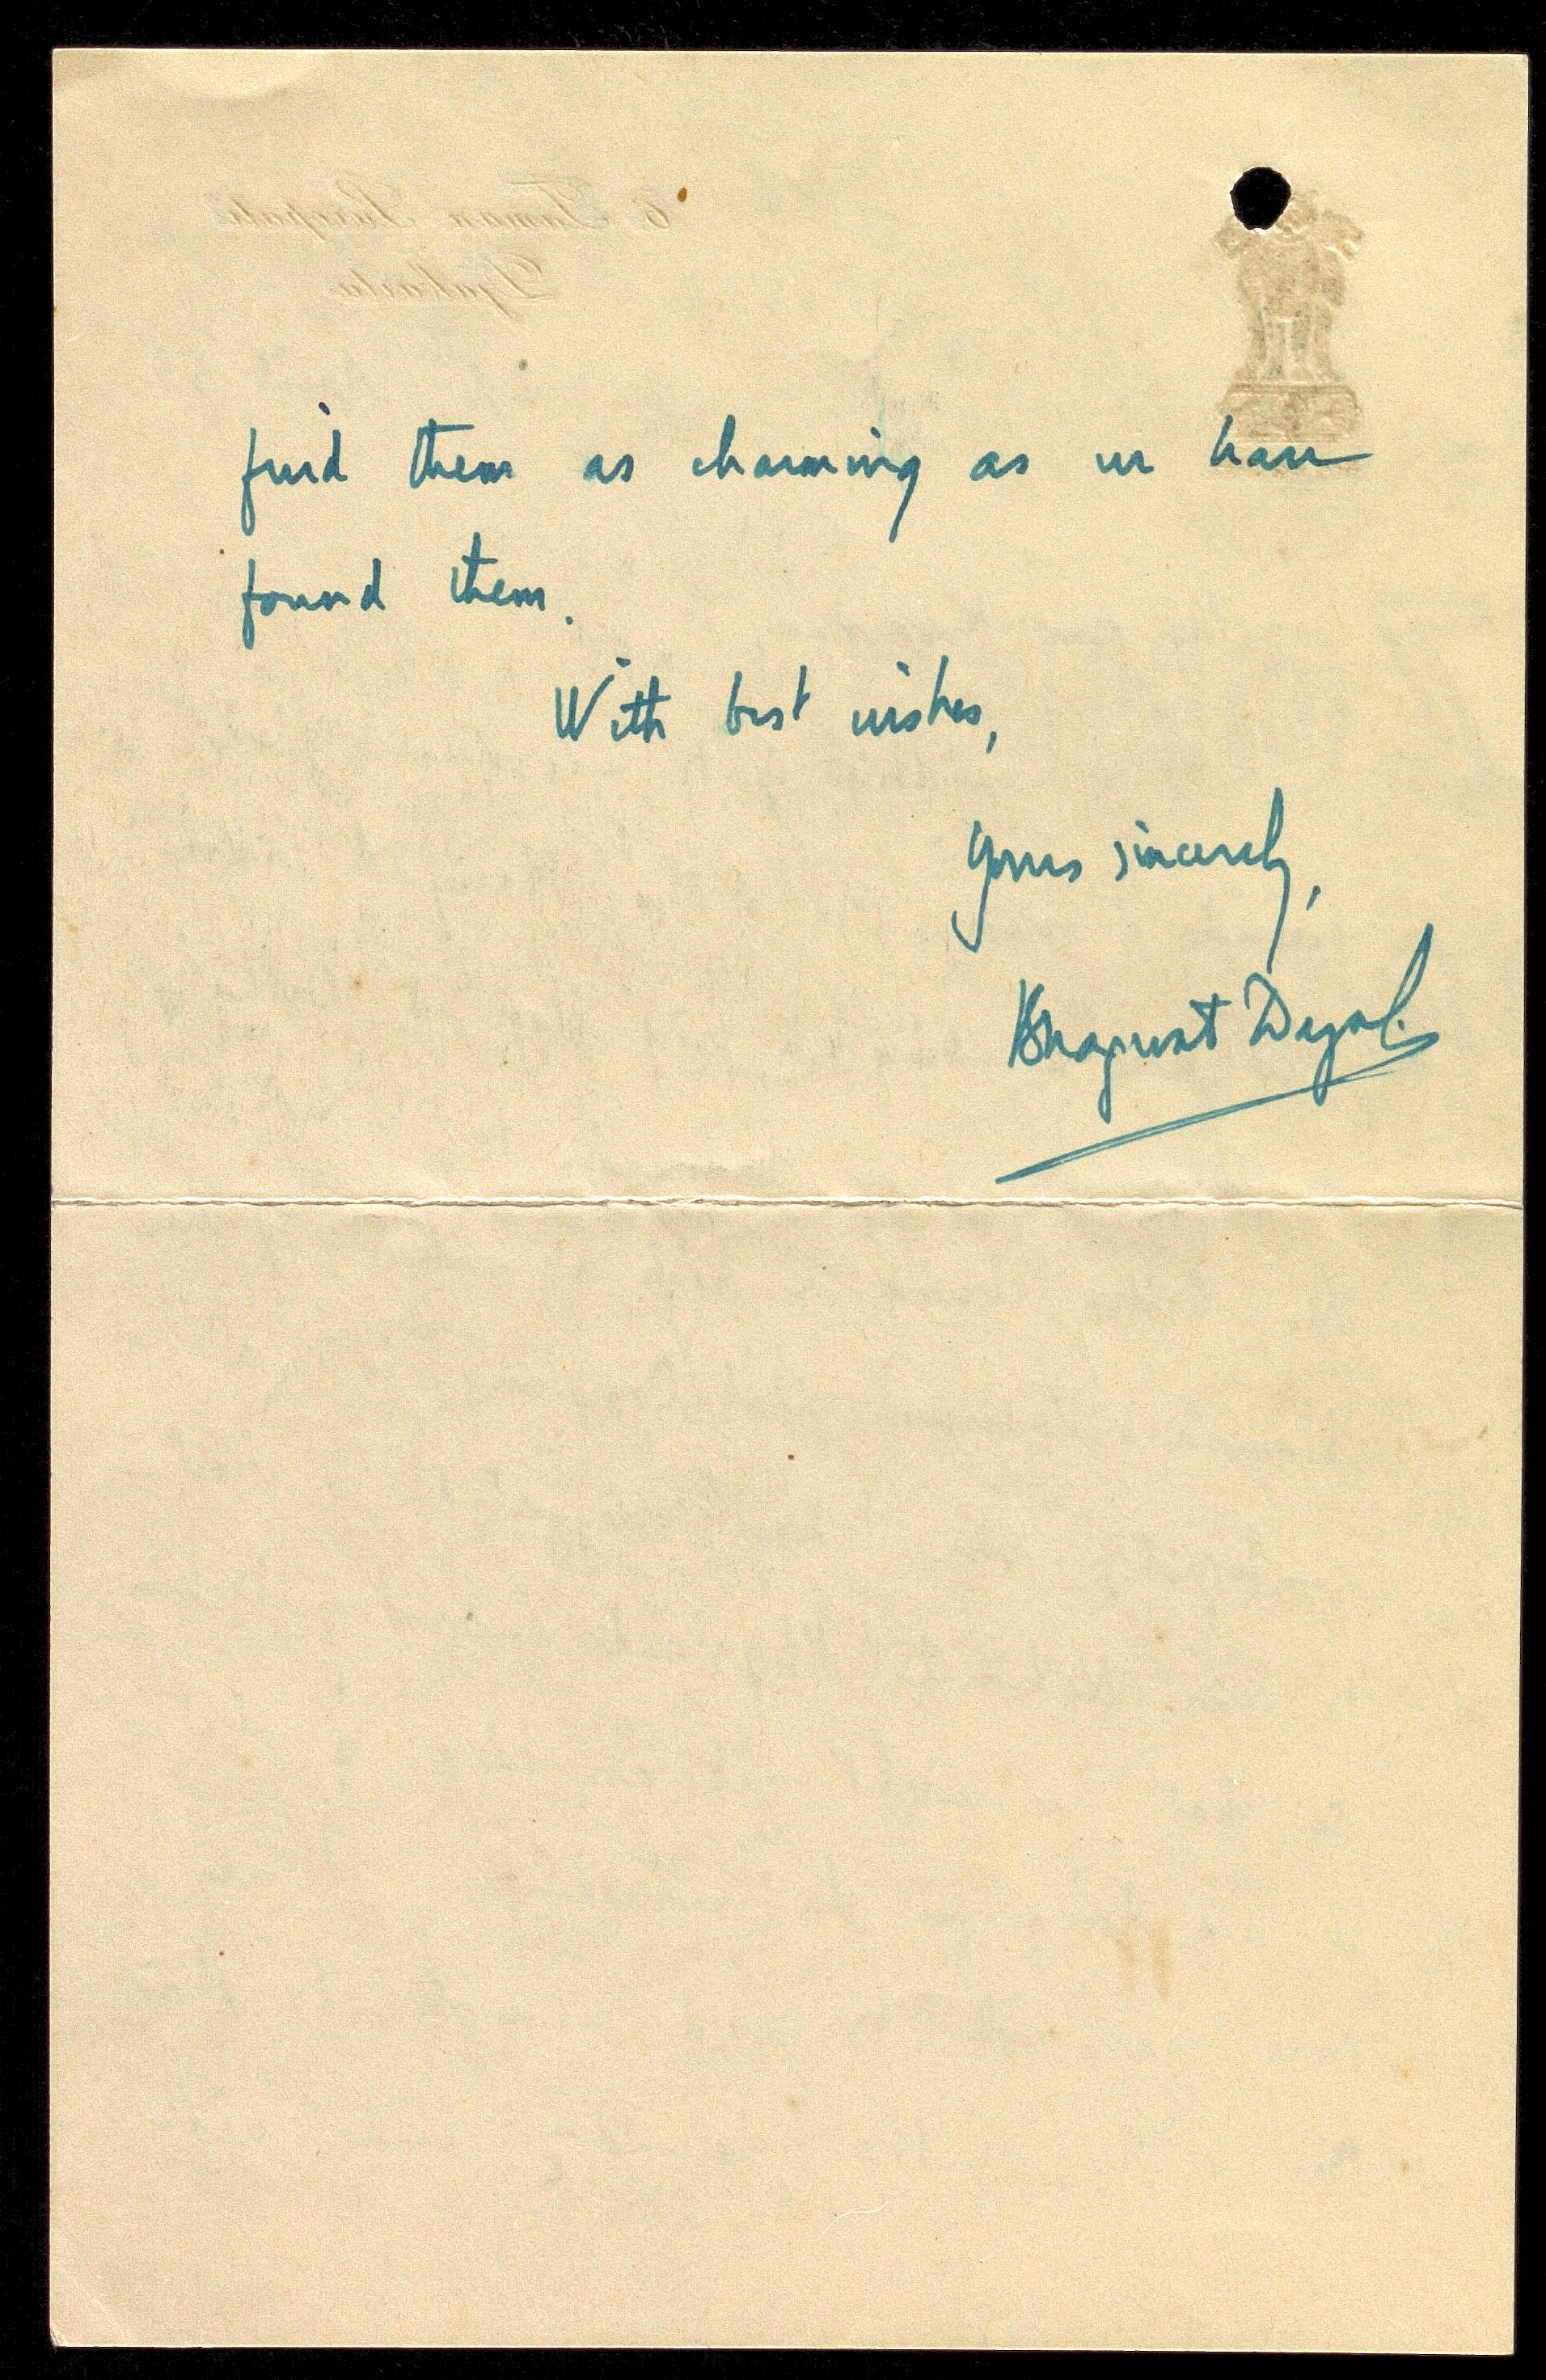 6, Taman Suropati
Djakarta
find them as charming as we have
found them.
With best wishes,
Yours sincerely,
Bhagwat Dayal.